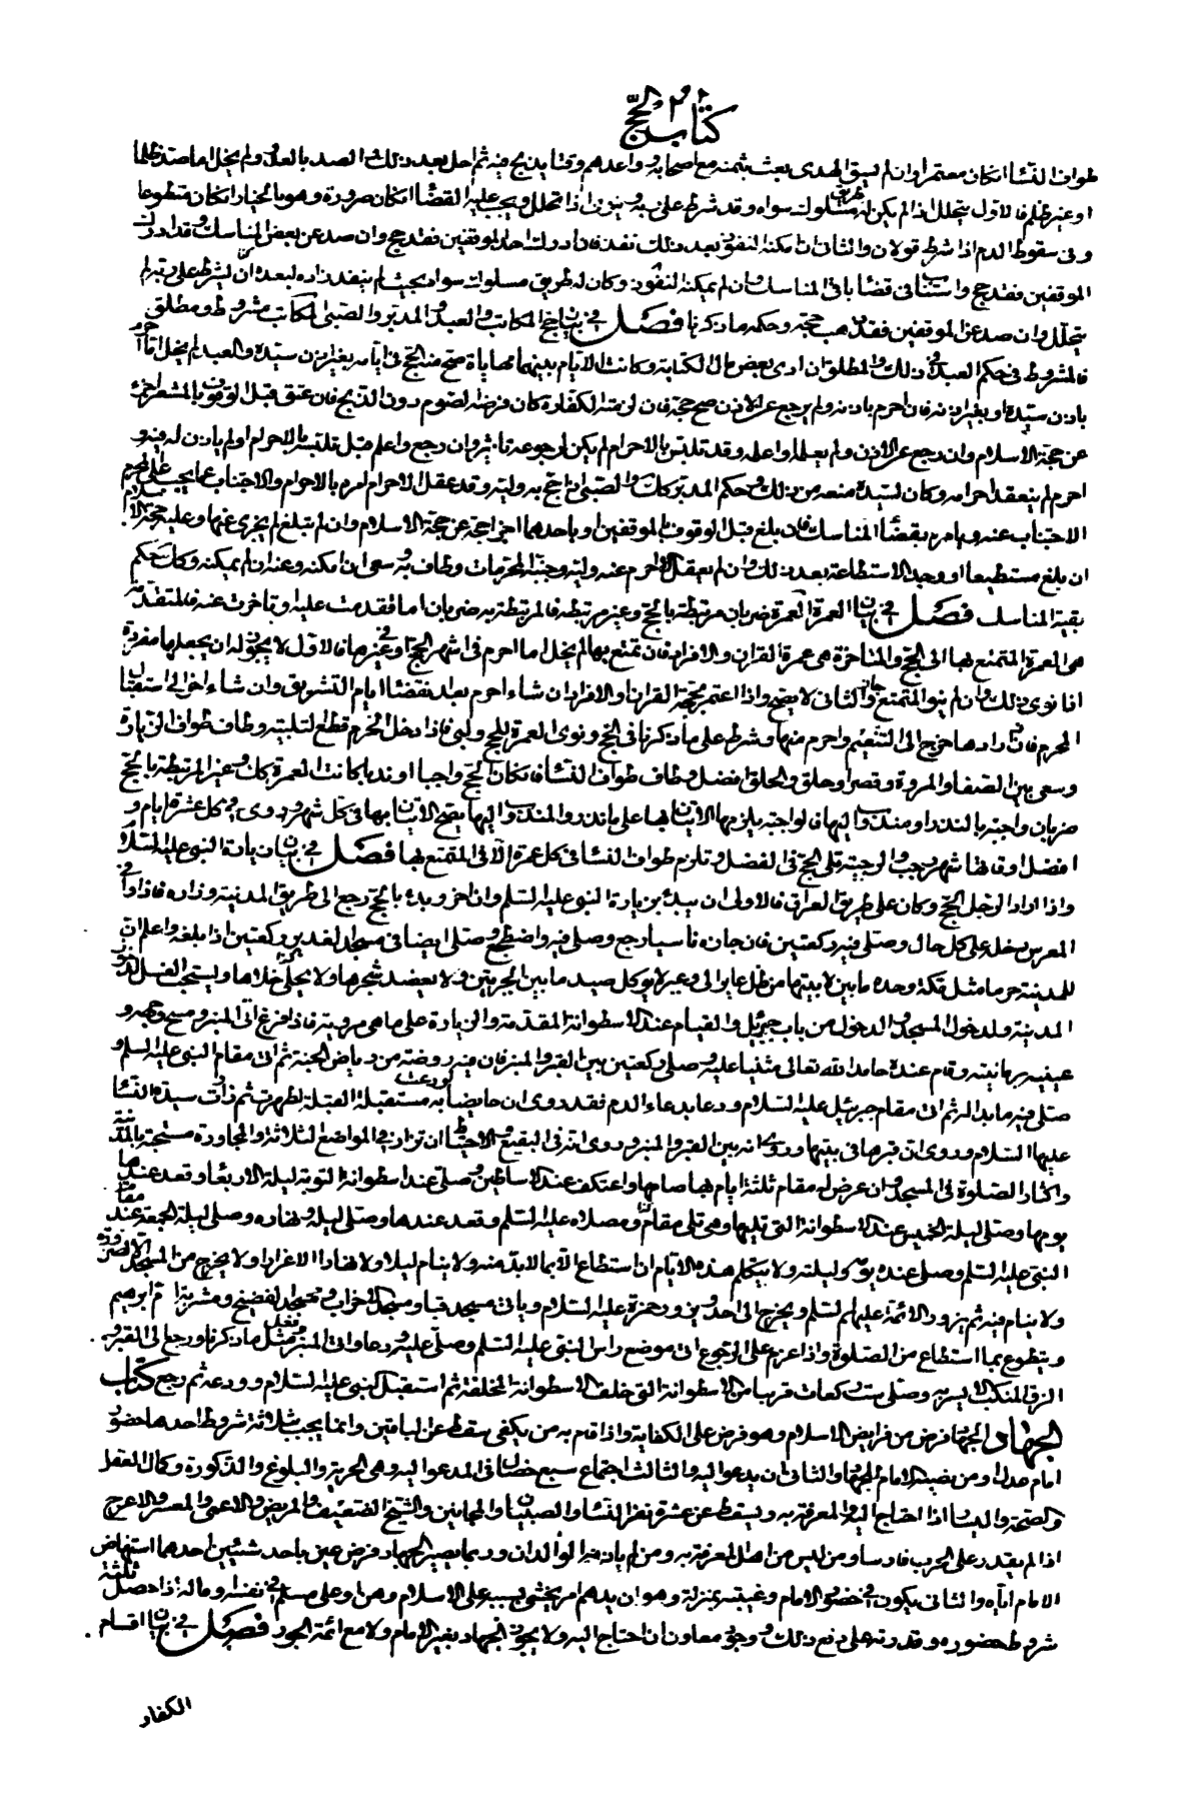 كتاب الحج
طواف النساء ان كان معتمرا وان لم يسق الهدى بعث بثمنه مع اصحابه وواعدهم وقتا يذبح فيه ثم احل بعد ذلك والصد بالعدو ولم يخل اما صد ظلما
او غير ظلم فالاول يتحلل اذا لم يكن له طريق مسلوك سواه وقد شرط على ربه وينوى اذا تحلل ويجب عليه القضاء ان كان صرورة وهو بالخيار ان كان متطوعا
وفى سقوط الدم اذا شرط قولان والثانى ان امكنه النفوذ بعد ذلك نفذ فان ادرك احد الموقفين فقد حج وان صد عن بعض المناسك وقد ادرك
الموقفين فقد حج واستناب فى قضاء باقى المناسك وان لم يمكنه النفوذ وكان له طريق مسلوك سواه بحيث لم ينفد زاده لبعده ان لم يشترط على ربه لم
يتحلل وان صد عن الموقفين فقد ذهب حجته وحكمه ما ذكرنا فصل فى بيان حج المكاتب والعبد والمدبر والصبى المكاتب مشروط ومطلق
فالمشروط فى حكم العبد فى ذلك والمطلق ان ادى بعض مال الكتابة وكانت الايام بينهما مهاياة صح منه الحج فى ايامه بغير اذن سيده والعبد لم يخل اما احرم
باذن سيده او بغير اذنه فان احرم باذنه ولم يرجع عن الاذن صح حجه فان لزمته الكفارة كان فرضه الصوم دون الذبح فان عتق قبل الوقوف بالمشعر اجزء
عن حجة الاسلام وان رجع عن الاذن ولم يعلمه او اعلمه وقد تلبس بالاحرام لم يكن لرجوعه تاثير وان رجع واعلم قبل تلبسه بالاحرام او لم ياذن له فيه و
احرم لم ينعقد احرامه وكان لسيده منعه من ذلك وحكم المدبر كذلك والصبى اذا حج به وليه وقد عقل الاحرام امره بالاحرام والاجتناب عما يجب على المحرم
الاجتناب عنه ويامره بقضاء المناسك فان بلغ قبل الوقوف بالموقفين او باحدهما اجزء حجه عن حجة الاسلام وان لم تبلغ لم يجزى عنها وعليه حجة الاسلام
ان بلغ مستطيعا او وجد الاستطاعة بعد ذلك وان لم يعقل الاحرام احرم عنه وليه وجنبه المحرمات وطاف به وسعى ان امكنه وعنه ان لم يمكنه وكذلك حكم
بقية المناسك فصل فى بيان العمرة العمرة ضربان مرتبطة بالحج وغير مرتبطة فالمرتبطة به ضربان اما تقدمت عليه او تاخرت عنه فالمتقدمة
هى العمرة المتمتع بها الى الحج والمتاخرة هى عمرة القران والافراد فان تمتع بها لم يخل اما احرم فى اشهر الحج او فى غيرها فالاول لا يجوز له ان يجعلها مفردة
اذا نوى ذلك وان لم ينو التمتع جاز والثانى لا يصح واذا اعتمر بحجة القران او الافراد ان شاء احرم بعد انقضاء ايام التشريق وان شاء اخر الى استقبال
المحرم فان ارادها خرج الى التنعيم واحرم منها وشرط على ما ذكرنا فى الحج ونوى العمرة للحج ولبى فاذا دخل الحرم قطع التلبية وطاف طواف الزيارة
وسعى بين الصفا والمروة وقصر او حلق والحلق افضل وطاف طواف النساء فان كان الحج واجبا او ندبا كانت العمرة كذلك وغير المرتبطة بالحج
ضربان واجبة بالنذر او مندوب اليها فالواجبة يلزمها الاتيان بها على ما نذر والمندوب اليها يصح الاتيان بها فى كل شهر وروى فى كل عشرة ايام و
افضل اوقاتها شهر رجب والرجبية تلى الحج فى الفضل وتلزم طواف النساء فى كل عمرة الا فى المتمتع بها فصل فى بيان زيارة النبى عليه السلام
واذا اراد الرجل الحج وكان على طريق العراق فالاولى ان يبدء بزيارة النبى عليه السلم وان اخر وبدء بالحج رجع الى طريق المدينة وزاره فاذا وافى
المعرس دخله على كل حال وصلى فيه ركعتين فان جازه ناسيا رجع وصلى فيه واضطجع وصلى ايضا فى مسجد الغدير ركعتين اذا بلغه واعلم ان
للمدينة حرما مثل مكة وحده ما بين لابتيها من ظل عاير الى وعير لا يؤكل صيد ما بين الحرتين ولا يعضد شجرها ولا يختلى خلاها ويستحب الغسل لدخول
المدينة ولدخول المسجد والدخول من باب جبرئيل والقيام عند الاسطوانة المقدمة والزيارة على ما هى مروية فاذا فرغ اتى المنبر ومسح وجهه و
عينيه برمانتيه وقام عنده حامدا لله تعالى مثنيا عليه وصلى ركعتين بين القبر والمنبر فان فيه روضة من رياض الجنة ثم اتى مقام النبى عليه السلم و
صلى فيه ما بدا له ثم اتى مقام جبرئيل عليه السلام ودعا بدعاء الدم فقد روى ان حايضا دعت به مستقبلة القبلة الا طهرت ثم زارت سيدة النساء
عليها السلام وروى ان قبرها فى بيتها وروى انه بين القبر والمنبر وروى انه فى البقيع والاحتياط ان تزار فى المواضع الثلاثة والمجاورة مستحبة بالمدينة
واكثار الصلوة فى المسجد وان عرض له مقام ثلثة ايام بها صامها واعتكف عند الاساطين وصلى عند اسطوانة التوبة ليلة الاربعاء وقعد عندها
يومها وصلى ليلة الخميس عند الاسطوانة التى تليها وهى تلى مقام ومصلاه عليه السلم وقعد عندها وصلى ليله ونهاره وصلى ليلة الجمعة عند مقام
النبى عليه السلم وصلى عنده يومه وليلته ولا يتكلم هذه الايام ان استطاع الا بما لا بد منه ولا ينام ليلا ولا نهارا الا غرارا ولا يخرج من المسجد الا لضرورة
ولا ينام فيه ثم يزور الائمة عليهم السلم ويخرج الى احد ويزور حمزة عليه السلام وياتى مسجد قبا ومسجد الاحزاب ومسجد الفضيخ ومشربة ام ابرهيم
ويتطوع بما استطاع من الصلوة واذا عزم على الرجوع اتى موضع راس النبى عليه السلم وصلى عليه ودعا واتى المنبر وفعل مثل ما ذكرنا ورجع الى القبر و
الزق المنكب الايسر به وصلى ست ركعات قريبا من الاسطوانة التى خلف الاسطوانة المخلقة ثم استقبل النبى عليه السلام وودعه ثم رجع كتاب
الجهاد الجهاد فرض من فرايض الاسلام وهو فرض على الكفاية واذا قام به من يكفى سقط عن الباقين وانما يجب بثلاثة شروط احدها حضور
امام عدل او من نصبه الامام للجهاد والثانى ان يدعو اليه والثالث اجتماع سبع خصال فى المدعو اليه وهى الحرية والبلوغ والذكورة وكمال العقل
والصحة واليسار اذا احتاج اليه والمعرفة به ويسقط عن عشرة نفر النساء والصبيان والمجانين والشيخ الضعيف والمريض والاعمى والمعسر والاعرج
اذا لم يقدر على الحرب فارسا ومن ليس من اهل المعرفة به ومن لم ياذن له الوالدان وربما يصير الجهاد فرض عين باحد شيئين احدهما استنهاض
الامام اياه والثانى يكون فى حضور الامام وغيبته بمنزلة وهو ان يدهم امر يخشى بسببه على الاسلام وهن او على مسلم فى نفسه او ماله اذا حصل ثلثة
شروط حضوره وقدرته على دفع ذلك ووجود معاون ان احتاج اليه ولا يجوز الجهاد بغير الامام ولا مع ائمة الجور فصل فى بيان اقسام
الكفار